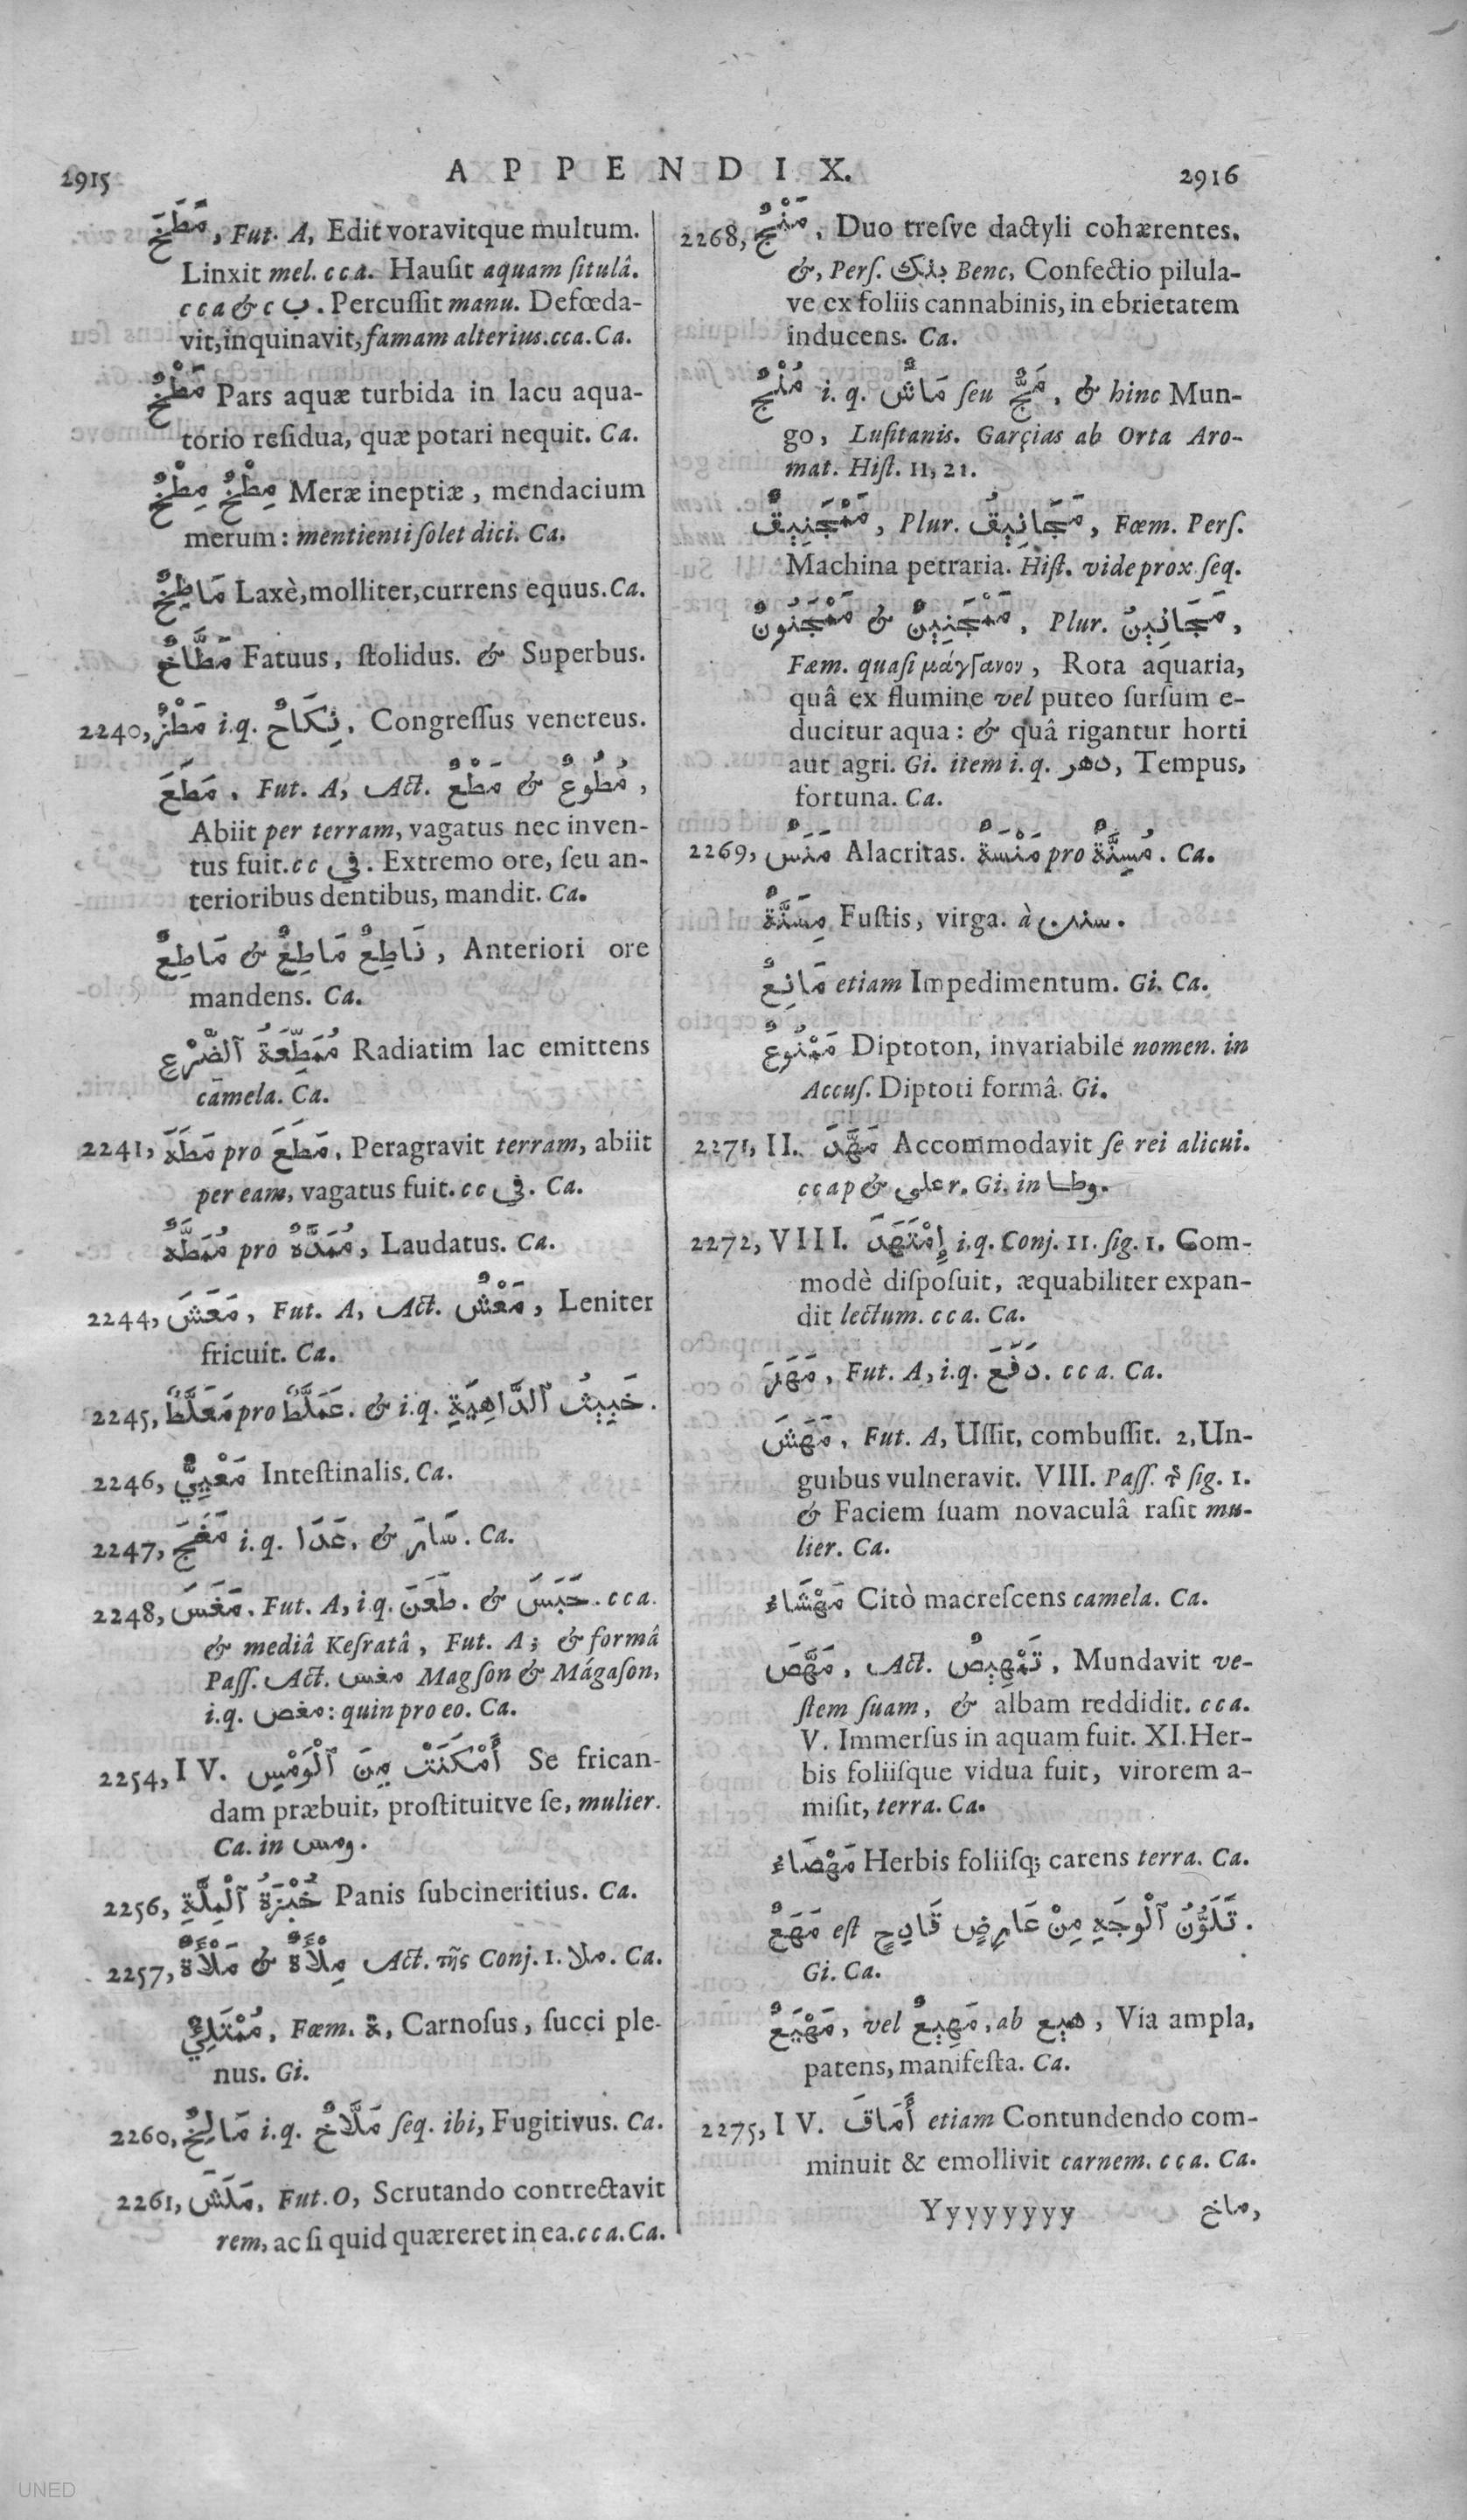 2915
APPENDIX.
2916
مَطَخَ, Fut. A, Edit voravitque multum.
Linxit mel. cca. Hausit aquam situlâ.
cca & c ب. Percussit manu. Defœda-
vit, inquinavit, famam alterius. cca. Ca.
مَطْخٌ Pars aquæ turbida in lacu aqua-
torio residua, quæ potari nequit. Ca.
مِطْخٌ مِطْخٌ Meræ ineptiæ, mendacium
merum: mentienti solet dici. Ca.
مَاطِخٌ Laxè, molliter, currens equus. Ca.
مَطَّاخٌ Fatuus, stolidus. & Superbus.
2240, مَطْزٌ i.q. نِكَاحٌ, Congressus venereus.
مَطَعَ, Fut. A, Act. مَطْعٌ & مُطُوعٌ,
Abiit per terram, vagatus nec inven-
tus fuit. cc في. Extremo ore, seu an-
terioribus dentibus, mandit. Ca.
مَاطِعٌ & مَاطِعٌ نَاطِعٌ, Anteriori ore
mandens. Ca.
مُمَطِّعَةُ ٱلضَّرْعِ Radiatim lac emittens
camela. Ca.
2241, مَطَهَ pro مَطَعَ, Peragravit terram, abiit
per eam, vagatus fuit. cc في. Ca.
مُمَطَّهٌ pro مُمَدَّهٌ, Laudatus. Ca.
2244, مَعَشَ, Fut. A, Act. مَعْشٌ, Leniter
fricuit. Ca.
2245, مَعَلَّطٌ pro عَمَلَّطٌ. & i.q. خَبِيثُ ٱلدَّاهِيَةِ.
2246, مَعْيِيٌّ Intestinalis. Ca.
2247, مَغَجَ i.q. عَدَا, & سَارَ. Ca.
2248, مَغَسَ, Fut. A, i.q. طَعَنَ. & حَبَسَ. cca.
& mediâ Kesratâ, Fut. A; & formâ
Pass. Act. مغس Magson & Mágason,
i.q. مغص: quin pro eo. Ca.
2254, IV. أَمْكَنَتْ مِنَ ٱلْوَمْسِ Se frican-
dam præbuit, prostituitve se, mulier.
Ca. in ومس.
2256, خُبْزَةُ ٱلْمِلَّةِ Panis subcineritius. Ca.
2257, مَلْأَةٌ & مِلْأَةٌ Act. τῆς Conj. 1. ملا. Ca.
مُمْتَلِيٌ, Fœm. ة, Carnosus, succi ple-
nus. Gi.
2260, مَالِخٌ i.q. مَلَّاخٌ seq. ibi, Fugitivus. Ca.
2261, مَلَشَ, Fut. O, Scrutando contrectavit
rem, ac si quid quæreret in ea. cca. Ca.
2268, مَنْجٌ, Duo tresve dactyli cohærentes.
&, Pers. بنك Benc, Confectio pilula-
ve ex foliis cannabinis, in ebrietatem
inducens. Ca.
مُنْجٌ i. q. مَاشٌ seu مَجٌّ, & hinc Mun-
go, Lusitanis. Garçias ab Orta Aro-
mat. Hist. 11, 21.
مَنْجَنِيقٌ, Plur. مَجَانِيقُ, Fœm. Pers.
Machina petraria. Hist. vide prox seq.
مَنْجَنُونٌ & مَنْجَنِينٌ, Plur. مَجَانِينُ,
Fœm. quasi μάγγανον, Rota aquaria,
quâ ex flumine vel puteo sursum e-
ducitur aqua: & quâ rigantur horti
aut agri. Gi. item i.q. دهر, Tempus,
fortuna. Ca.
2269, مَنَسٌ Alacritas. مَنْسَةٌ pro مُسِنَّةٌ. Ca.
مِسَنَّةٌ Fustis, virga. à سنن.
مَانِعٌ etiam Impedimentum. Gi. Ca.
مَمْنُوعٌ Diptoton, invariabile nomen. in
Accus. Diptoti formâ. Gi.
2271, II. مَهَّدَ Accommodavit se rei alicui.
ccap & على r. Gi. in وطا.
2272, VIII. إِمْتَهَدَ i.q. Conj. 11. sig. 1. Com-
modè disposuit, æquabiliter expan-
dit lectum. cca. Ca.
مَهَرَ, Fut. A, i.q. دَفَعَ. cca. Ca.
مَهَشَ, Fut. A, Ussit, combussit. 2, Un-
guibus vulneravit. VIII. Pass. τ̃ sig. 1.
& Faciem suam novaculâ rasit mu-
lier. Ca.
مَهْشَاء Citò macrescens camela. Ca.
مَهَّصَ, Act. تَمْهِيصٌ, Mundavit ve-
stem suam, & albam reddidit. cca.
V. Immersus in aquam fuit. XI. Her-
bis foliisque vidua fuit, virorem a-
misit, terra. Ca.
مَهْصَاء Herbis foliisq; carens terra. Ca.
مَهَعٌ est تَلَوُّنُ ٱلْوَجَهِ مِنْ عَارِضٍ قَادِحٍ.
Gi. Ca.
مَهْيَعٌ, vel مَهِيعٌ, ab هيع, Via ampla,
patens, manifesta. Ca.
2275, IV. أَمَاقَ etiam Contundendo com-
minuit & emollivit carnem. cca. Ca.
Yyyyyyyy
ماخ,
UNED